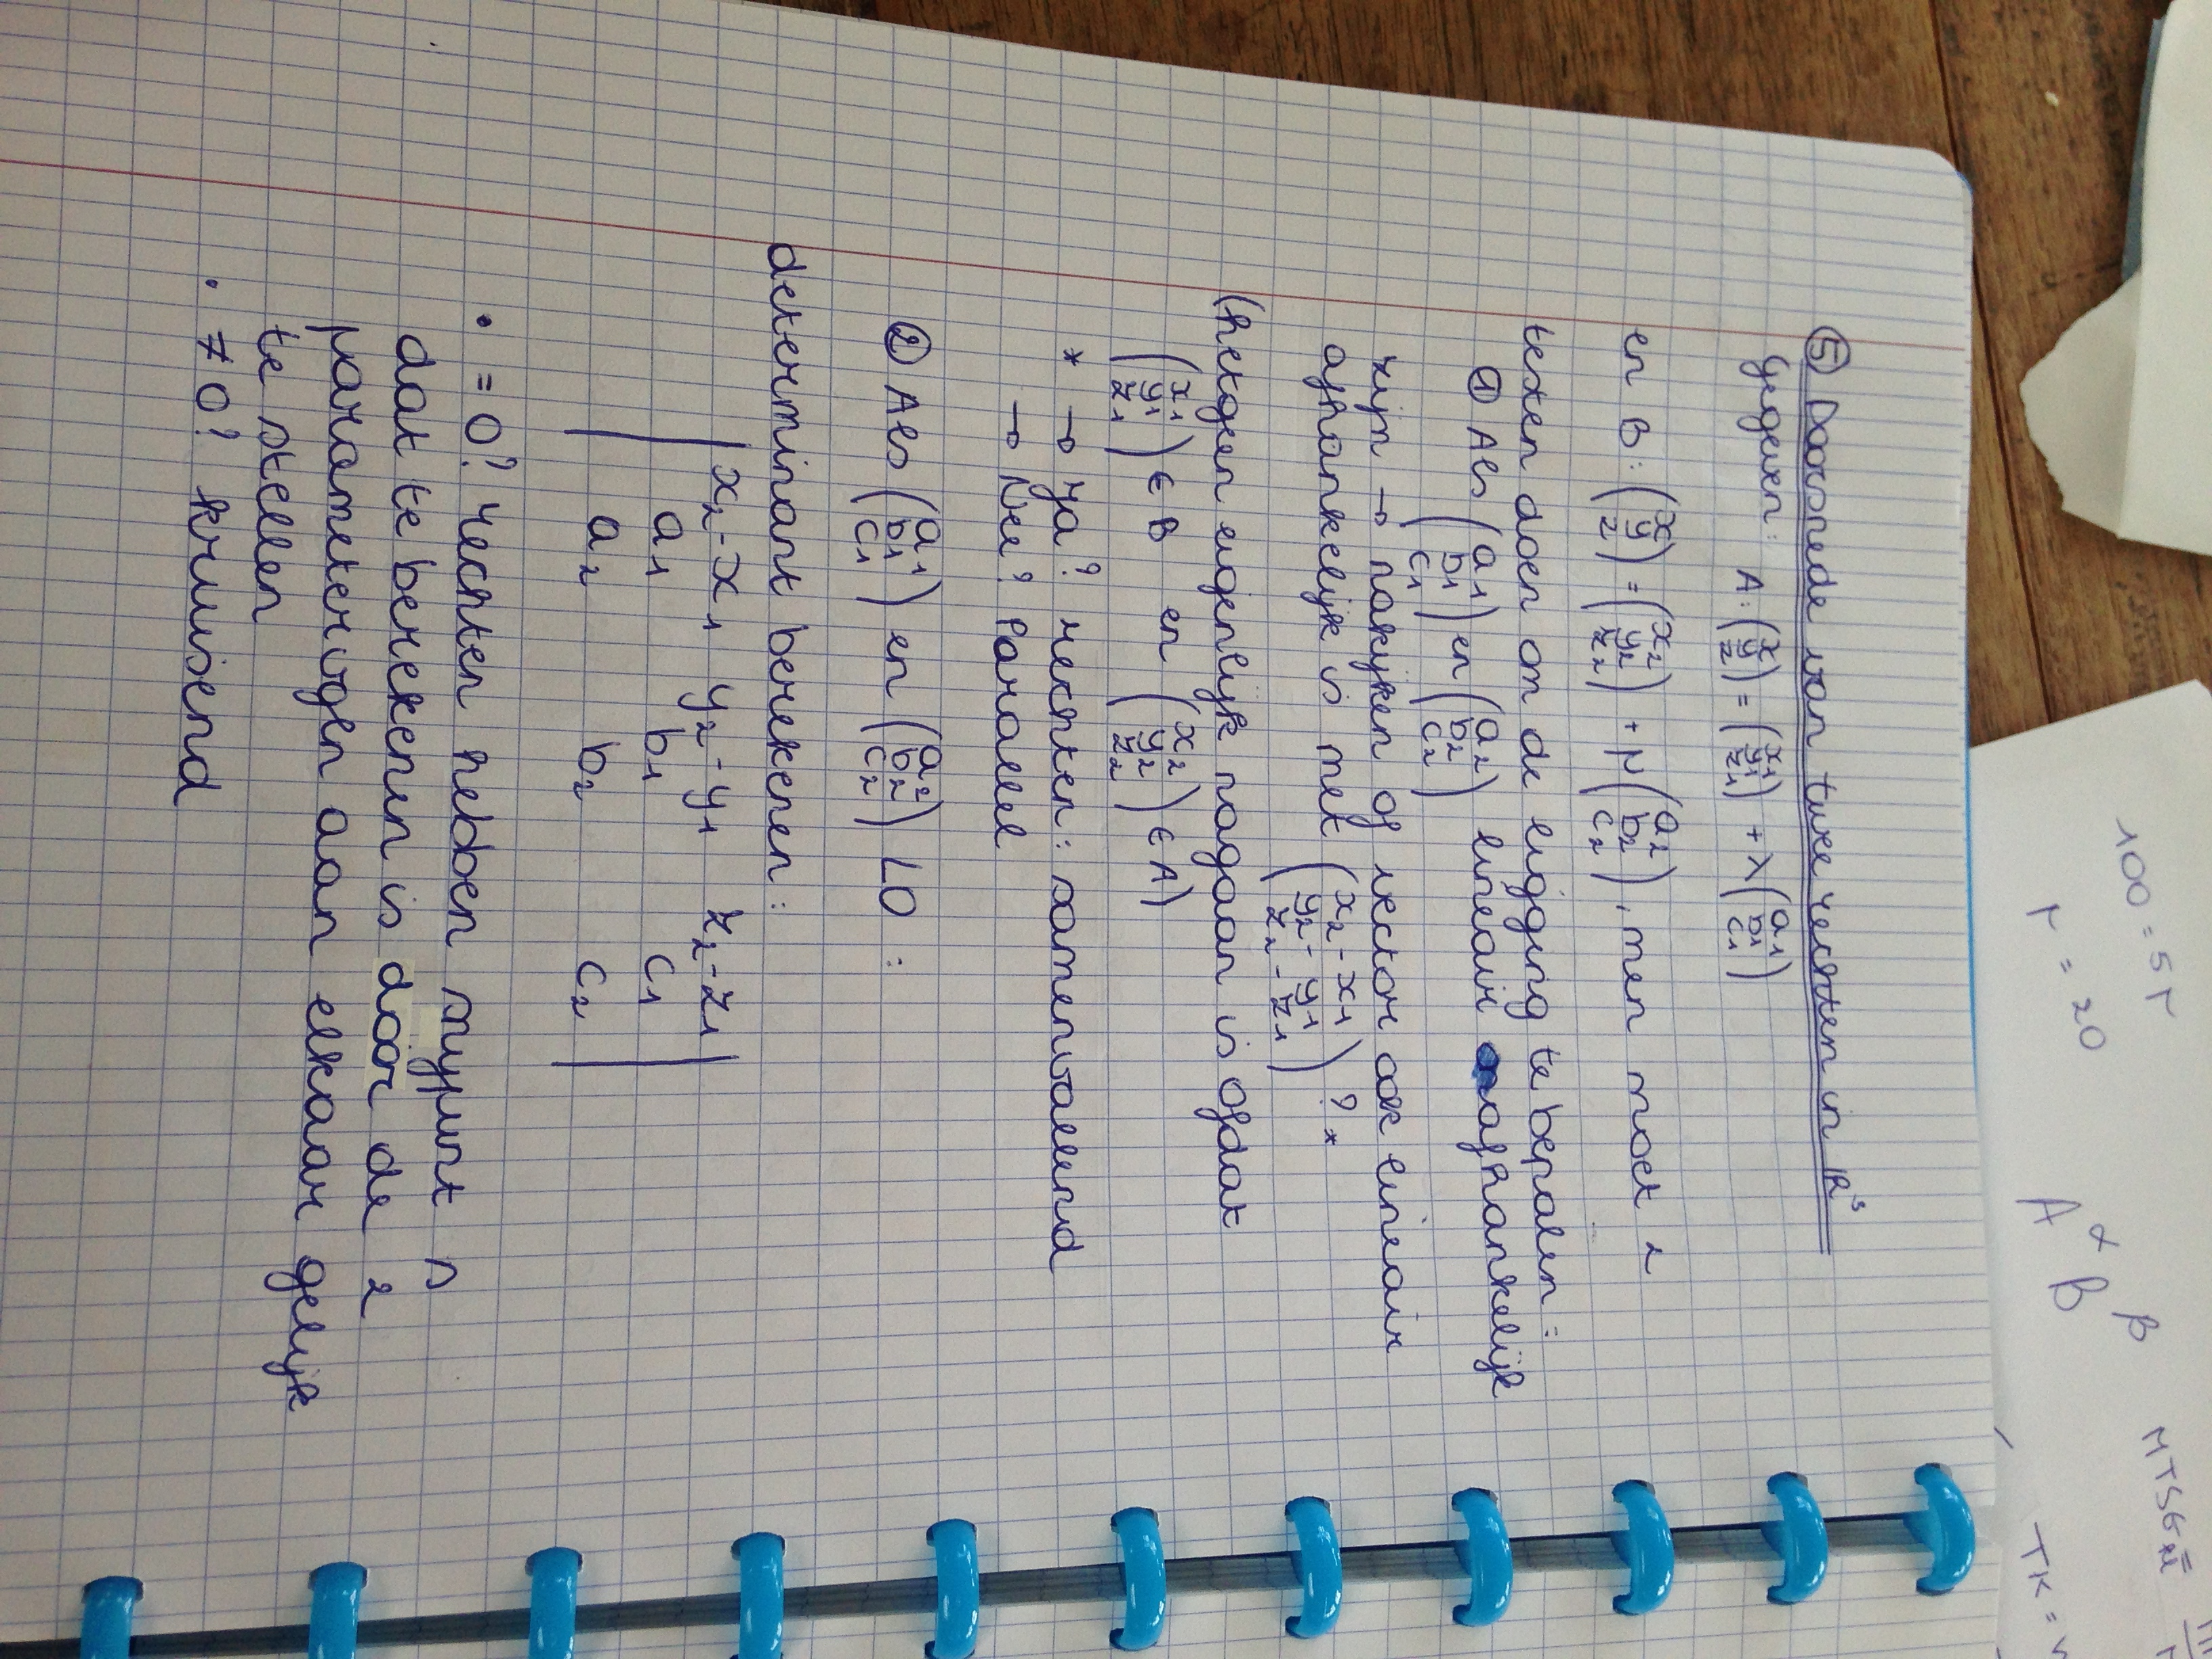 ⑤ Doorsnede van twee rechten in ℝ³
gegeven: A: (x y z) = (x₁ y₁ z₁) + λ(a₁ b₁ c₁)
en B: (x y z) = (x₂ y₂ z₂) + μ(a₂ b₂ c₂), men moet 2
testen doen om de ligging te bepalen:
① Als (a₁ b₁ c₁) en (a₂ b₂ c₂) lineair afhankelijk
zijn → nakijken of vector ook lineair
afhankelijk is met (x₂-x₁ y₂-y₁ z₂-z₁) ? *
(hetgeen eigenlijk nagaan is ofdat
(x₁ y₁ z₁) ∈ B en (x₂ y₂ z₂) ∈ A)
* → ya? rechten: samenvallend
→ Nee? Parallel
② Als (a₁ b₁ c₁) en (a₂ b₂ c₂) LO:
determinant berekenen:
| x₂-x₁ y₂-y₁ z₂-z₁ |
| a₁ b₁ c₁ |
| a₂ b₂ c₂ |
• = 0? rechten hebben snypunt S
dat te berekenen is door de 2
parametervgen aan elkaar gelijk
te stellen
• ≠ 0? kruisend
100 = 5r
r = 20
α β
A B
MTSG
TK =